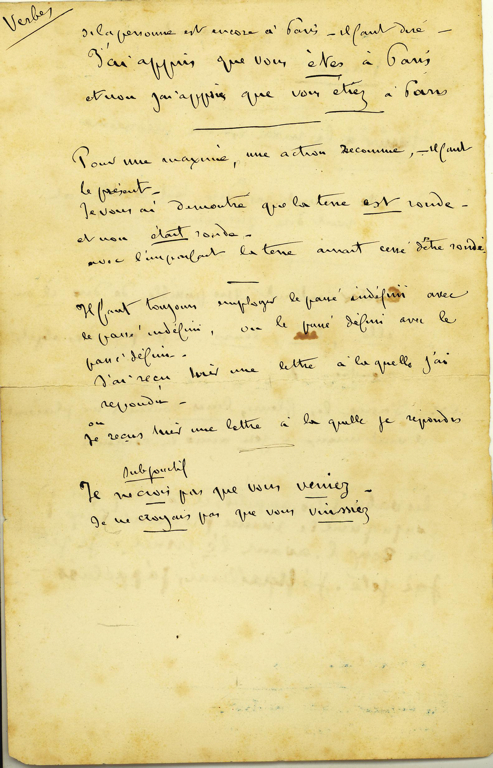 Verbes
si la personne est encore à Paris - il faut dire -
J'ai appris que vous êtes à Paris
et non j'ai appris que vous étiez à Paris
Pour une maxime, une action reconnue, - il faut
le présent -
Je vous ai démontré que la terre est ronde -
et non était ronde -
avec l'imparfait la terre aurait cessé d'être ronde
Il faut toujours employer le passé indéfini avec
le passé indéfini, ou le passé défini avec le
passé défini -
J'ai reçu hier une lettre à laquelle j'ai
repondu -
ou
Je reçus hier une lettre à la quelle je répondis
subjonctif
Je ne crois pas que vous veniez -
Je ne croyais pas que vous vinssiez